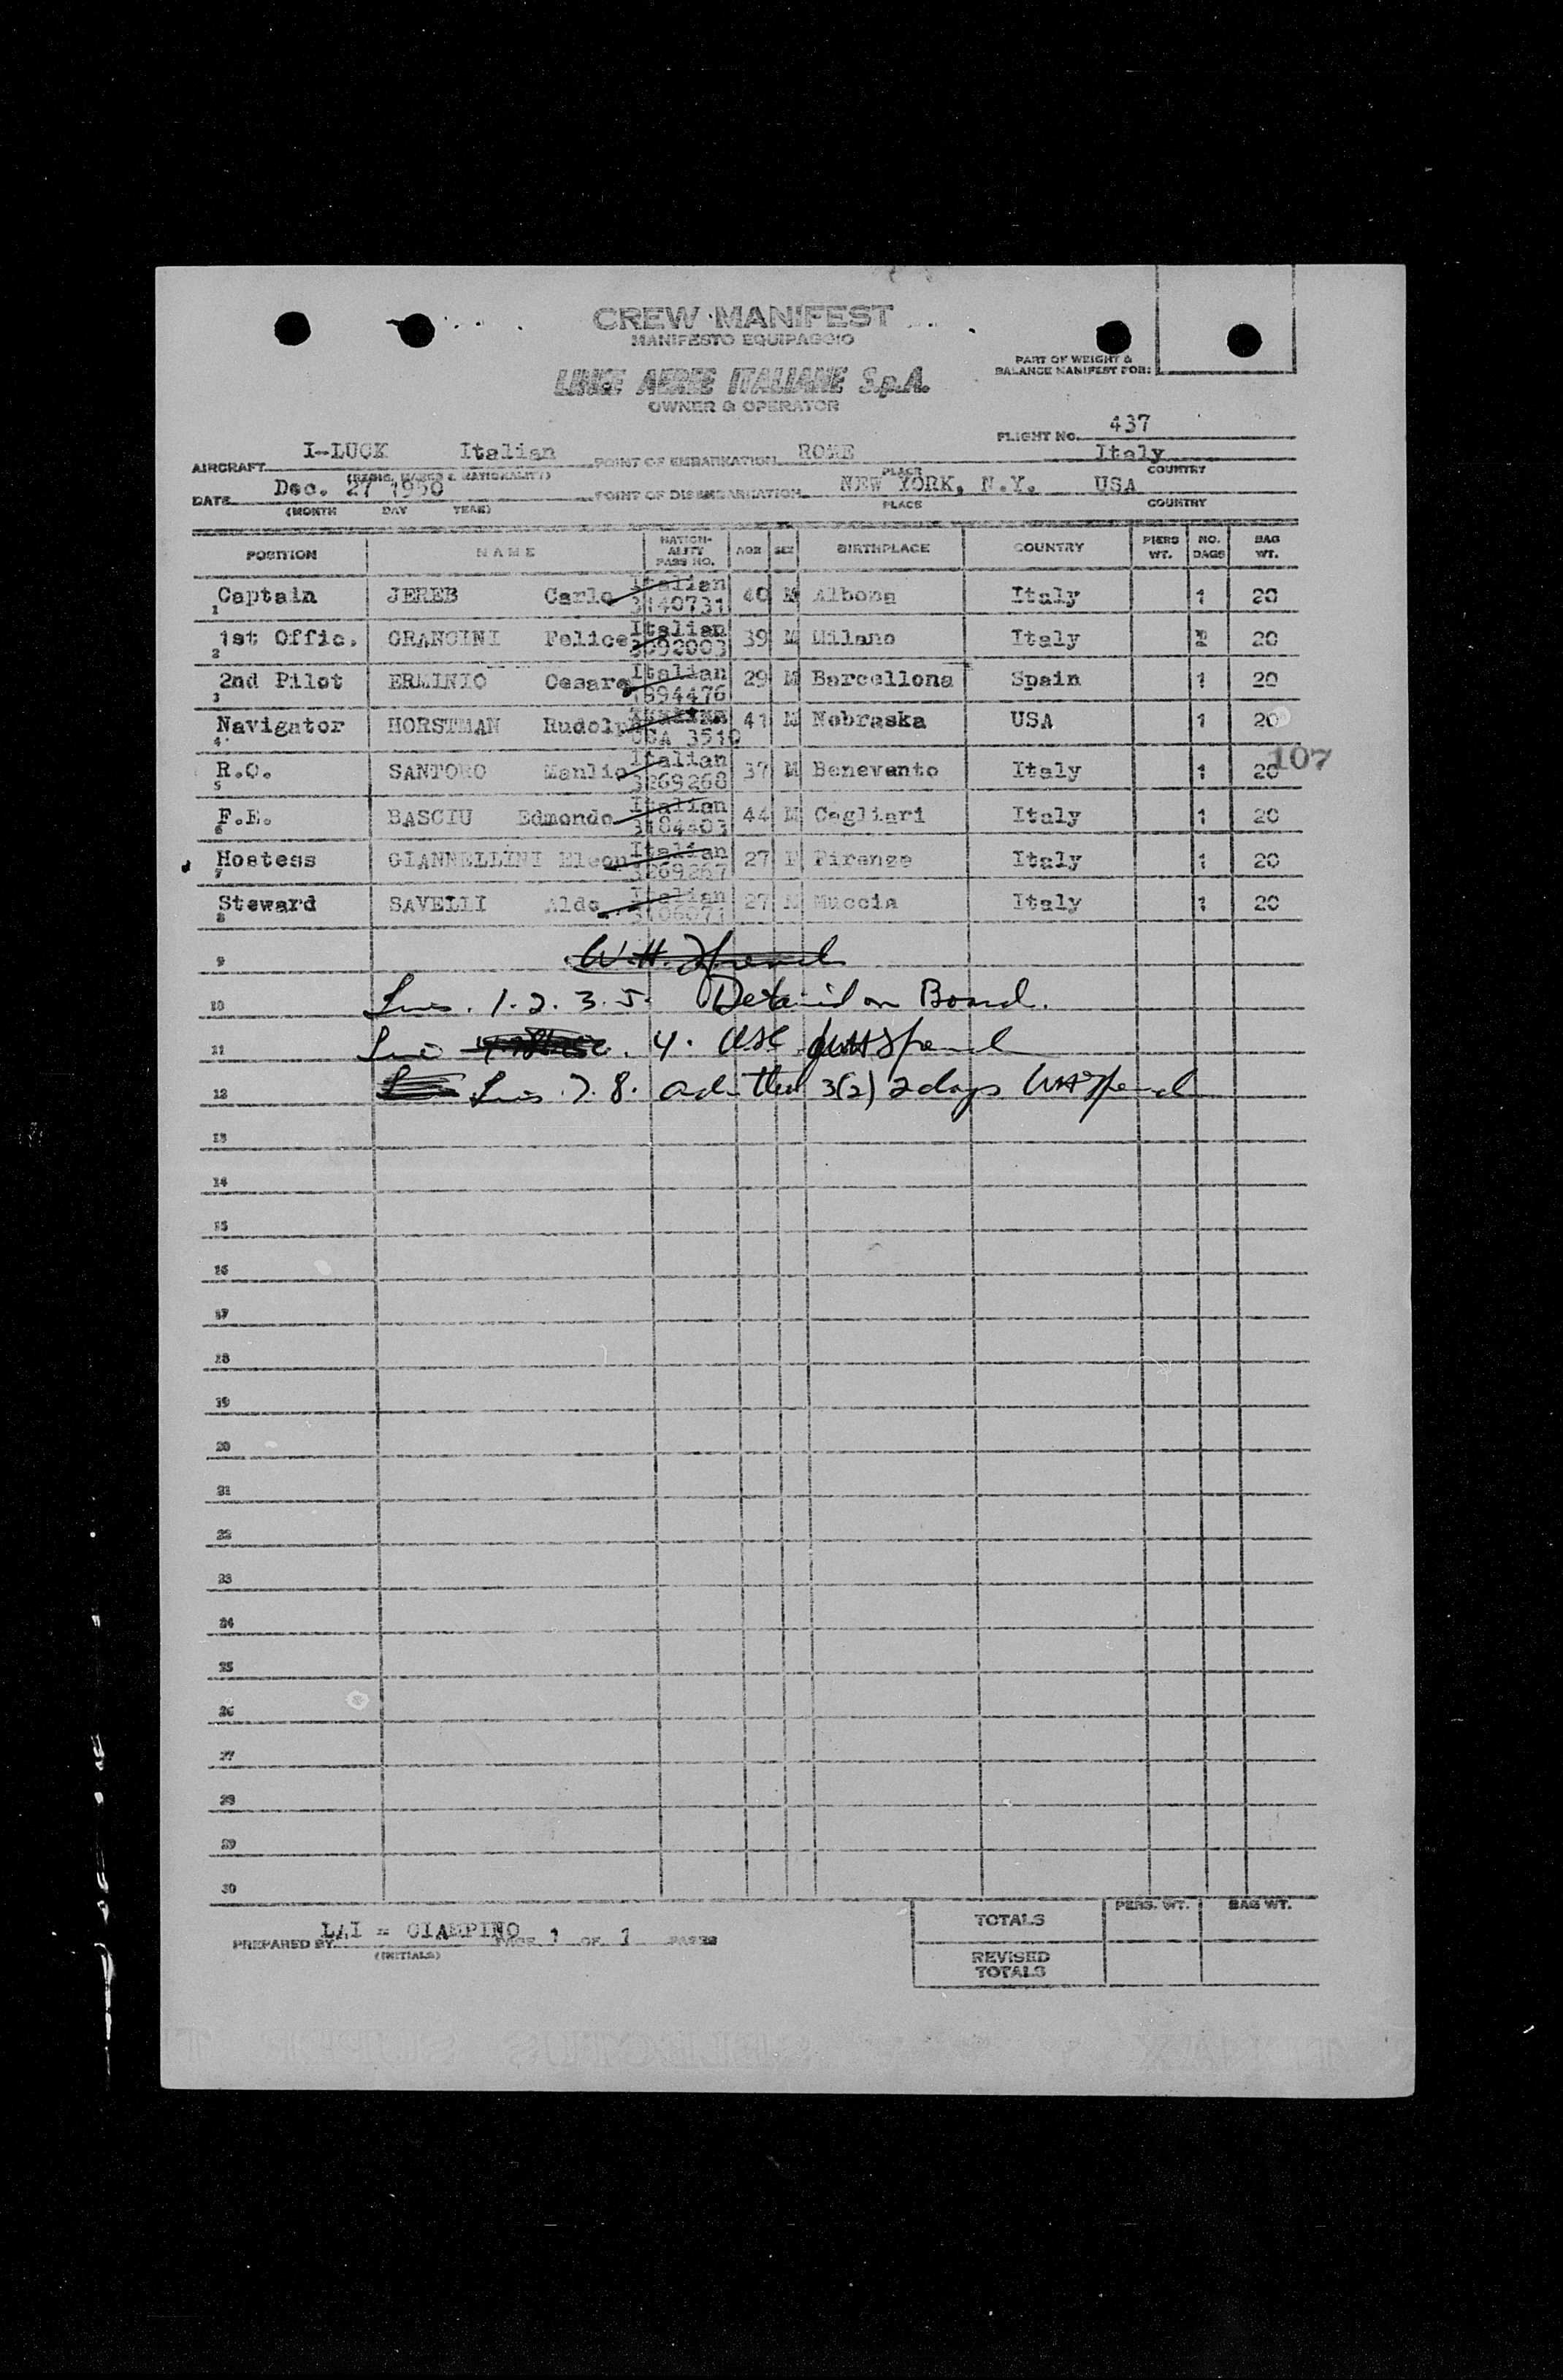 CREW MANIFEST
MANIFESTO EQUIPAGGIO
LINEE AEREE ITALIANE S.p.A.
OWNER & OPERATOR
PART OF WEIGHT &
BALANCE MANIFEST FOR:
FLIGHT NO. 437
AIRCRAFT I-LUCK Italian POINT OF EMBARKATION ROME Italy
(REGIS. MARKS & NATIONALITY) PLACE COUNTRY
DATE Dec. 27 1950 POINT OF DISEMBARKATION NEW YORK, N.Y. USA
(MONTH DAY YEAR) PLACE COUNTRY
POSITION NAME NATION-ALITY PASS NO. AGE SEX BIRTHPLACE COUNTRY PIERS WT. NO. BAGS BAG WT.
1 Captain JEREB Carlo Italian 3140731 40 M Albona Italy 1 20
2 1st Offic. GRANCINI Felice Italian 39 M Milano Italy 20
3 2nd Pilot ERMINIO Cesare Italian 1394476 29 M Barcellona Spain 1 20
4 Navigator HORSTMAN Rudolph 3510 41 M Nebraska USA 1 20
107
5 R.O. SANTORO Manlio Italian 3269268 37 M Benevento Italy 1 20
6 F.E. BASCIU Edmondo Italian 3184403 44 M Cagliari Italy 1 20
7 Hostess GIANNELLINI Eleon. Italian 3269267 27 F Firenze Italy 1 20
8 Steward SAVELLI Aldo Italian 27 M Muccia Italy 1 20
9
10 Lines. 1. 2. 3. 5. Detained on Board.
11 Line 4. USC
12 Lines. 7. 8. admitted 3(2) 2 days
13
14
15
16
17
18
19
20
21
22
23
24
25
26
27
28
29
30
PREPARED BY LAI - CIAMPINO PAGE 1 OF 1 PAGES
(INITIALS)
PERS. WT. BAG WT.
TOTALS
REVISED
TOTALS